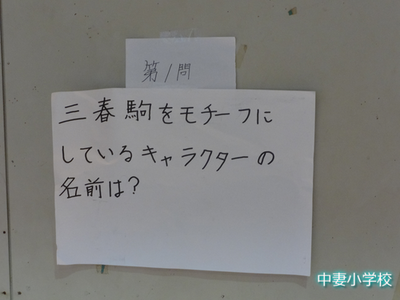 第1問
三春駒をモチーフに
しているキャラクターの
名前は?
中妻小学校